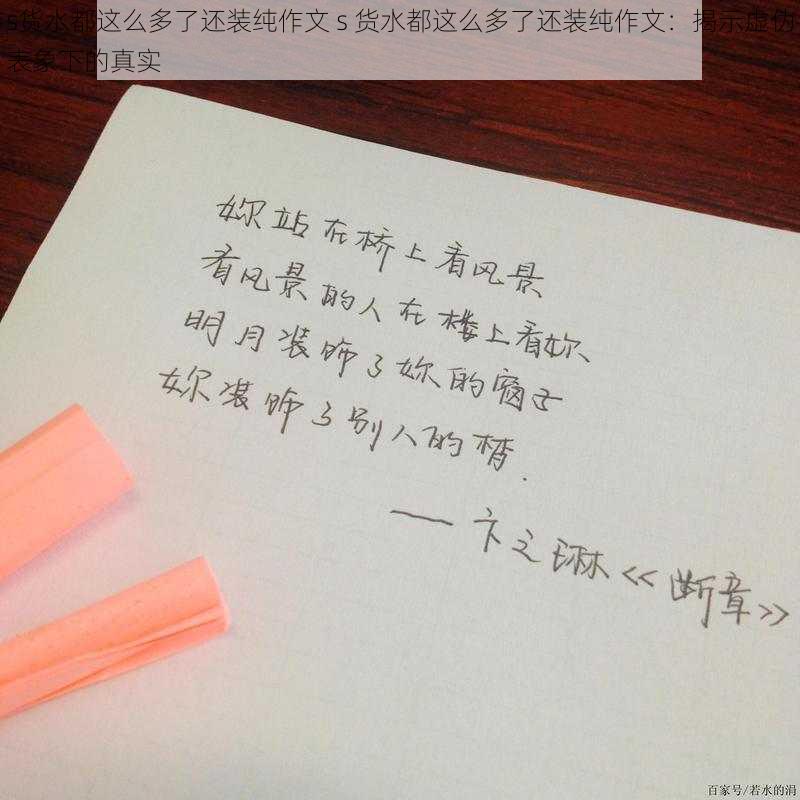 s货水都这么多了还装纯作文 s 货水都这么多了还装纯作文：揭示虚伪
表象下的真实
妳站在桥上看风景
看风景的人在楼上看妳、
明月装饰了妳的窗子
妳装饰了别人的梦.
——卞之琳《断章》
百家号/若水的涓